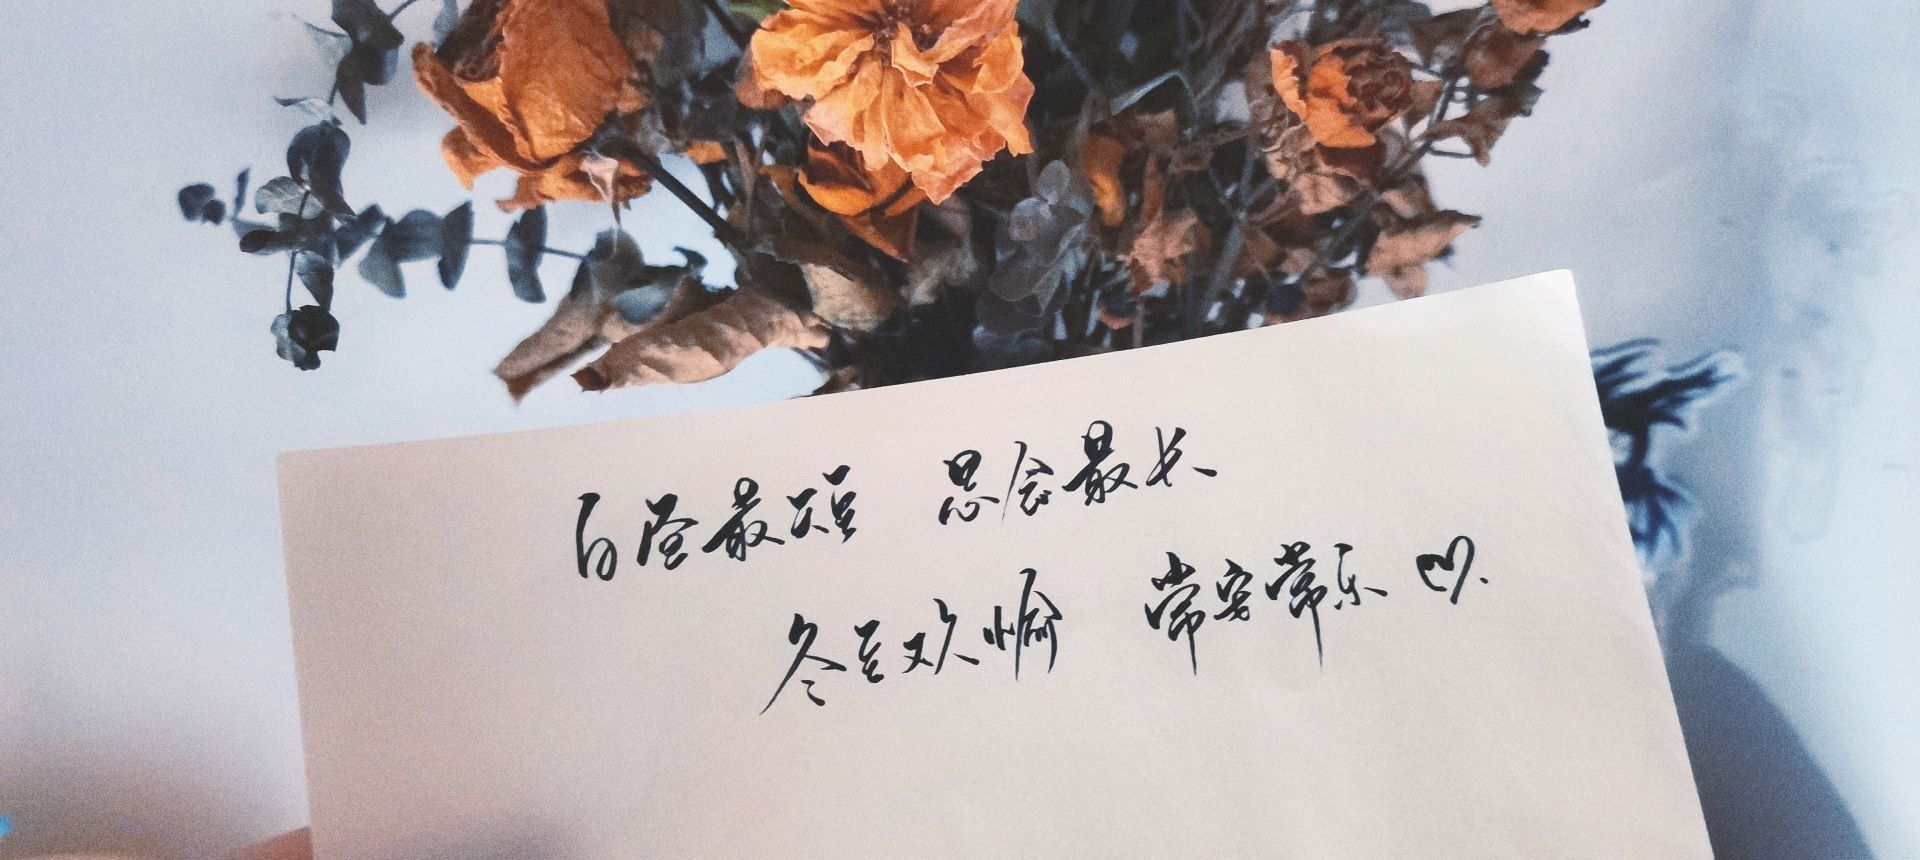 白昼最短 思念最长
冬至欢愉 常安常乐♡.